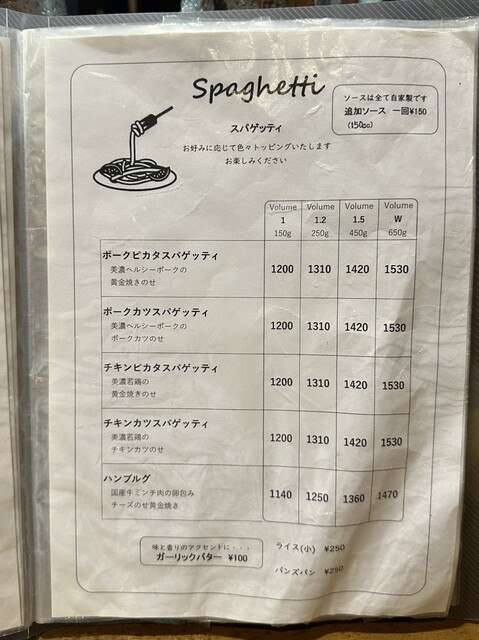 Spaghetti
ソースは全て自家製です
追加ソース 一回¥150
(150cc)
スパゲッティ
お好みに応じて色々トッピングいたします
お楽しみください
Volume Volume Volume Volume
1 1.2 1.5 W
150g 250g 450g 650g
ポークピカタスパゲッティ
美濃ヘルシーポークの
黄金焼きのせ
1200 1310 1420 1530
ポークカツスパゲッティ
美濃ヘルシーポークの
ポークカツのせ
1200 1310 1420 1530
チキンピカタスパゲッティ
美濃若鶏の
黄金焼きのせ
1200 1310 1420 1530
チキンカツスパゲッティ
美濃若鶏の
チキンカツのせ
1200 1310 1420 1530
ハンブルグ
国産牛ミンチ肉の卵包み
チーズのせ黄金焼き
1140 1250 1360 1470
味と香りのアクセントに・・・
ガーリックバター ¥100
ライス(小) ¥250
バンズパン ¥250